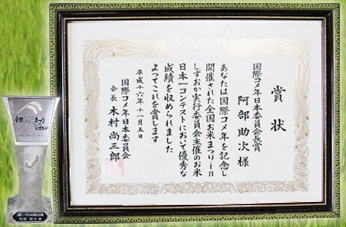 賞状
国際コメ年日本委員会長賞
阿部 助次 様
あなたは国際コメ年を記念し
開催された全国お米まつりin
しずおか実行委員会主催のお米
日本一コンテストにおいて優秀な
成績を収められました
よってこれを賞します
平成十六年十一月五日
国際コメ年日本委員会
会長 木村 尚三郎